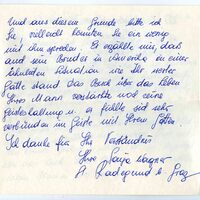 Und aus diesem Grunde bitte ich
Sie, vielleicht könnten Sie ein wenig
mit ihm sprechen. Er erzählte mir, daß
auch sein Bruder in Amerika in einer
ähnlichen Situation wie Ihr
Gatte stand. Das Buch über das Leben
Ihres Mann verstärkte noch seine
Geisteshaltung u. er fühlte sich sehr
verbunden im Geiste mit Ihrem Gatten
Ich danke für Ihr Verständnis
Ihre Wagner
St. Radegund b. Graz